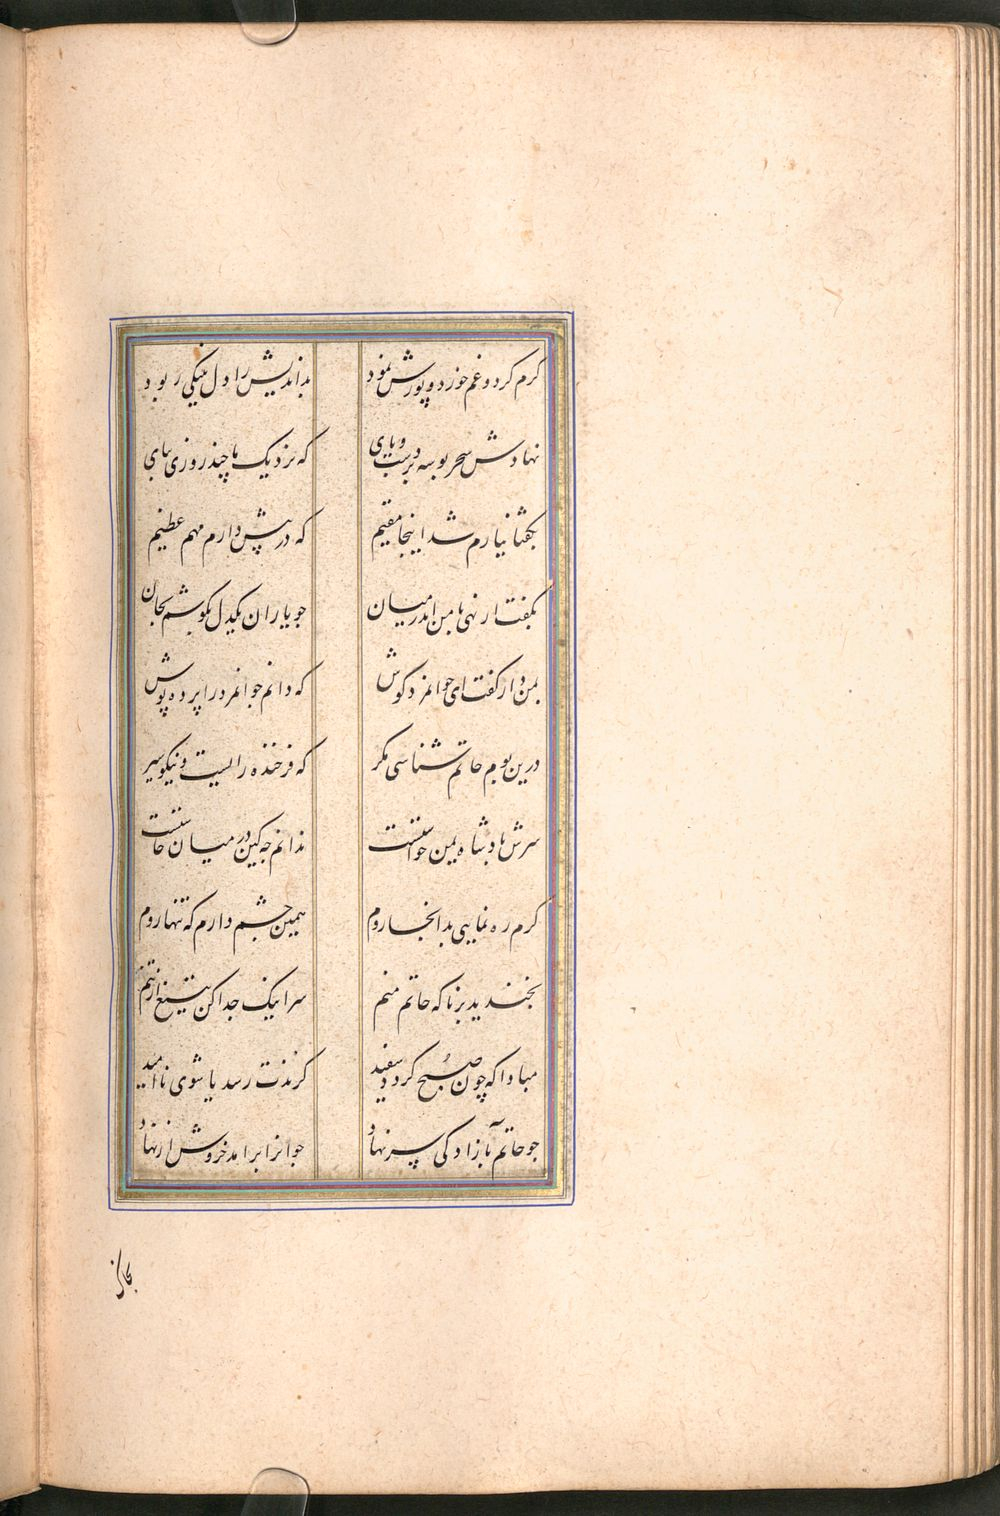 کرم کرد و غم خورد و پوزش نمود بداندیش را دل بنیکی ربود
نهادش سحر بوسه بر دست و پای که نزدیک ما چند روزی بپای
بگفتا نیارم شد اینجا مقیم که در پیش دارم مهم عظیم
بگفت ار نهی با من اندر میان چو یاران یکدل بکوشم بجان
بمن دار گفت ای جوانمرد گوش که دانم جوانمرد را پرده پوش
درین بوم حاتم شناسی مگر که فرخنده رایست و نیکو سیر
سرش پادشاه یمن خواستست ندانم چه کین در میان خاستست
کرم ره نمایی بدانجا روم همین چشم دارم که تنها روم
بخندید برنا که حاتم منم سر اینک جدا کن بتیغ از تنم
مبادا که چون صبح گردد سفید گزندت رسد یا شوی ناامید
چو حاتم بآزادگی سر نهاد جوانرا برآمد خروش از نهاد